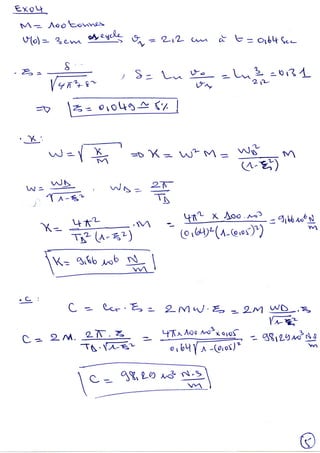 Exo4
M = 100 tonnes
v(0) = 3 cm os cycle → v₁ = 2,2 cm à t = 0,64 sec
. ξ = δ / √(4π² + δ²) , δ = Ln v₀/v₁ = Ln 3/2,2 = 0,31
⇒ ξ = 0,049 ≃ 5%
. K :
W = √(K/M) ⇒ K = W² M = W_D² / (1-ξ²) M
W = W_D / √(1-ξ²) , W_D = 2π / T_D
K = 4π² / (T_D² (1-ξ²)) . M = 4π² x 100 10³ / ((0,64)² (1-(0,05)²)) = 9,66 10⁶ N/m
K = 9,66 10⁶ N/m
. C :
C = Ccr . ξ = 2 M W . ξ = 2 M W_D / √(1-ξ²) . ξ
C = 2 M . 2π . ξ / (T_D . √(1-ξ²)) = 4π x 100 10³ x 0,05 / (0,64 √(1-(0,05)²)) = 98,29 10³ N.s/m
C = 98,29 10³ N.s/m
5